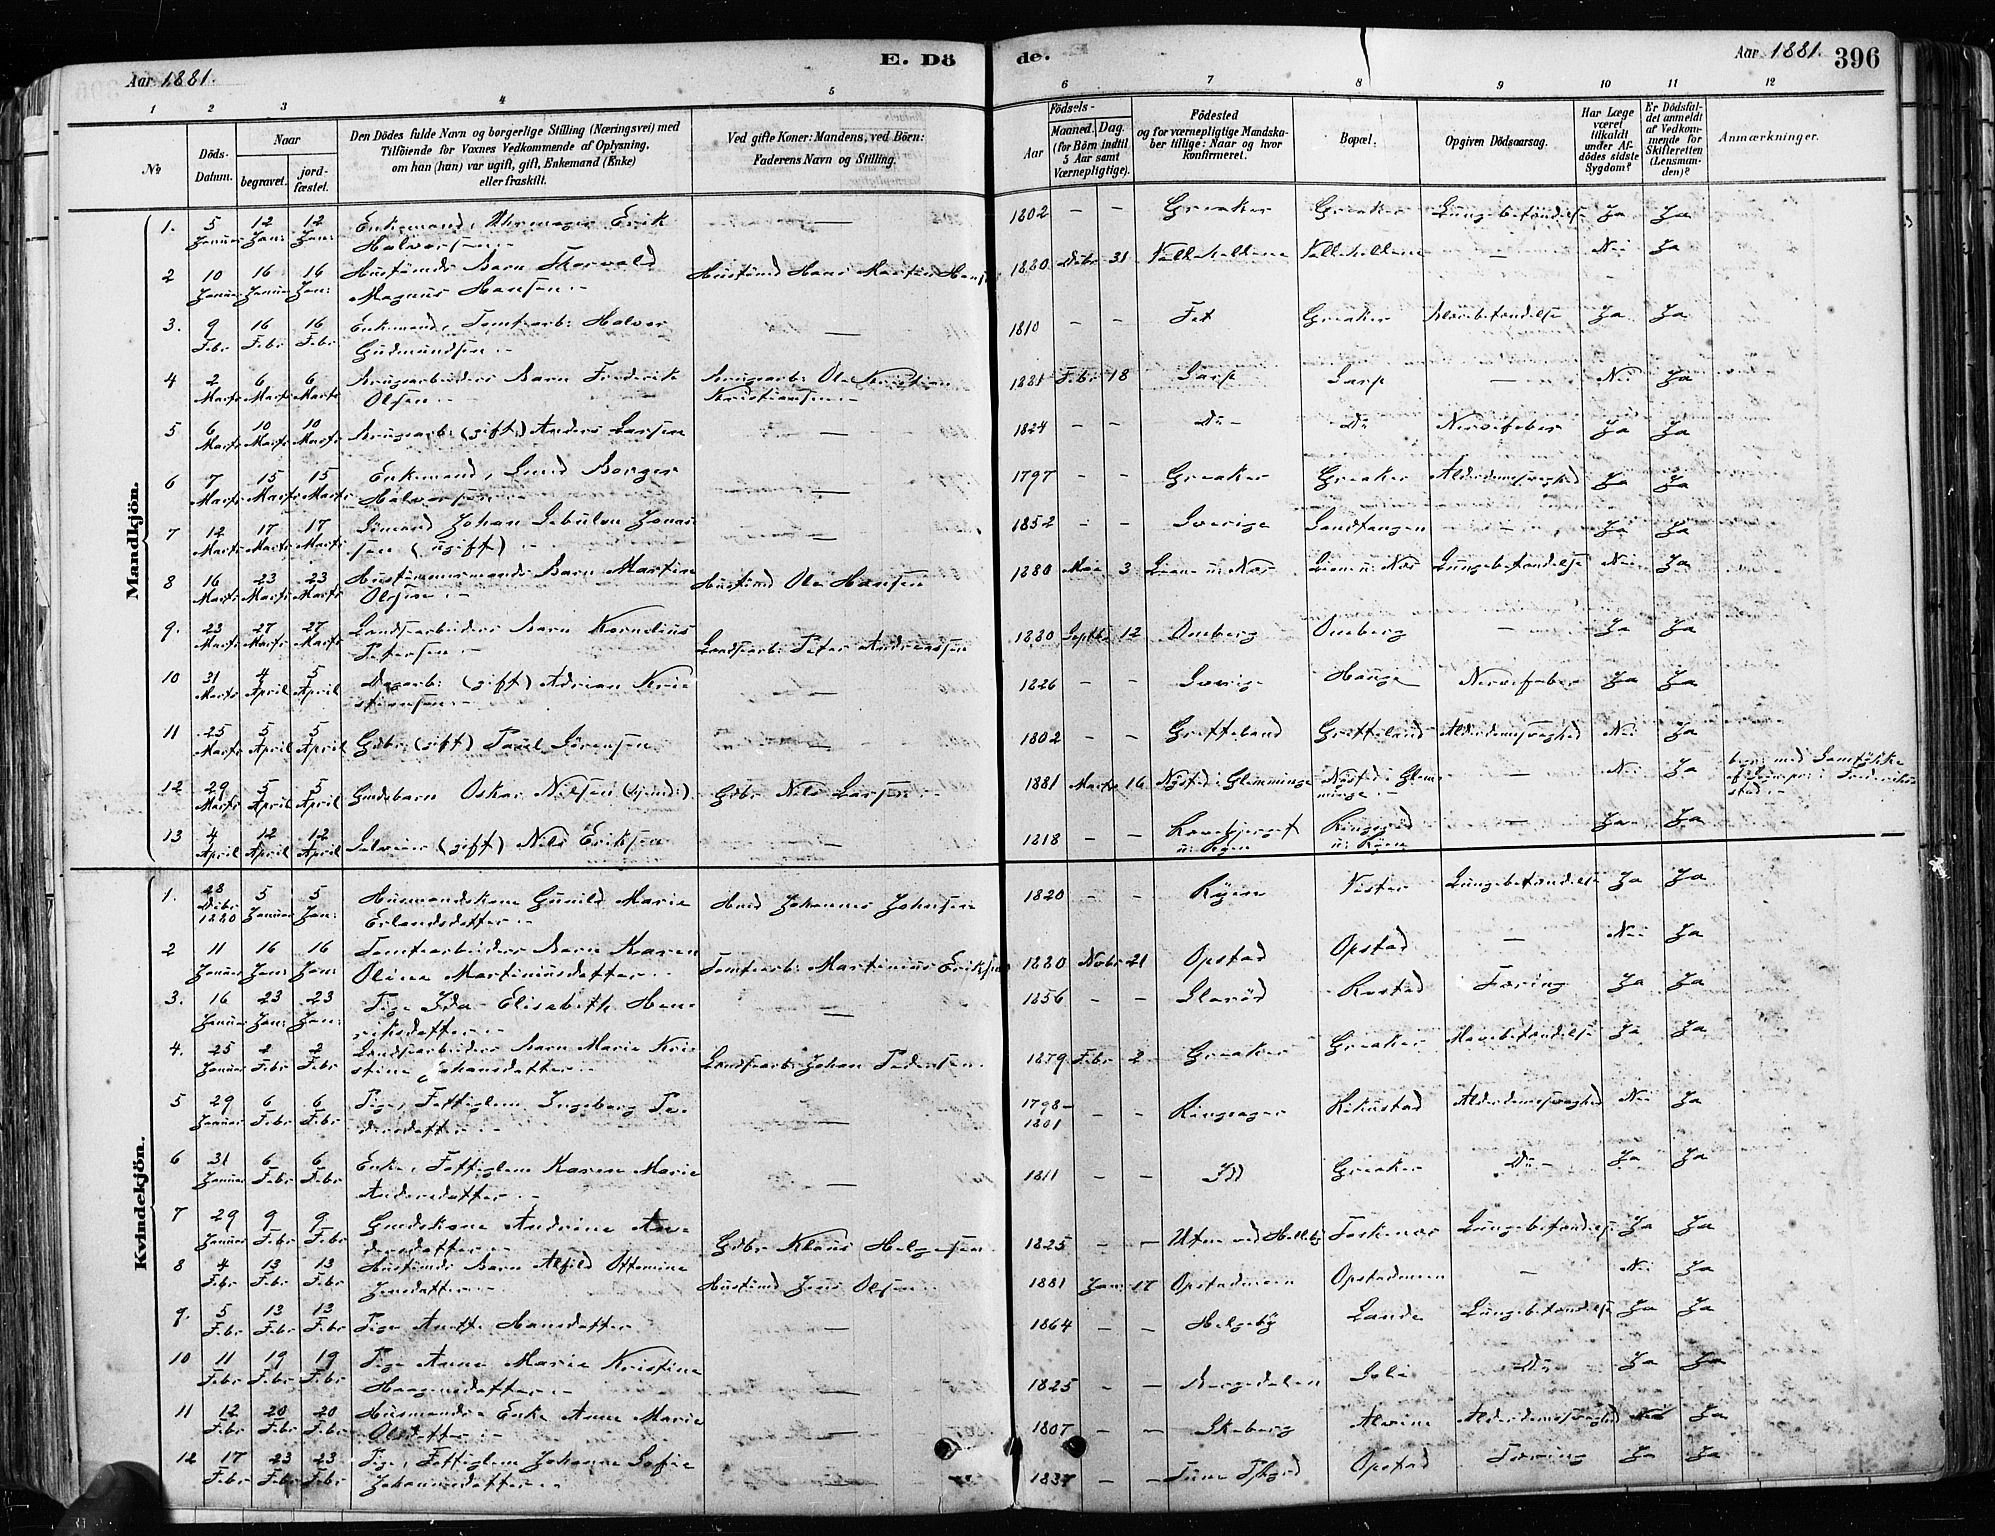 Aar 1881.
E. Dö
de.
Aar 1881.
396
1 2 3 4 5 6 7 8 9 10 11 12
No
Döds-Datum.
Naar
begravet.
jord-fæstet.
Den Dödes fulde Navn og borgerlige Stilling (Næringsvei) med
Tilföiende for Voxnes Vedkommende af Oplysning,
om han (hun) var ugift, gift, Enkemand (Enke)
eller fraskilt.
Ved gifte Koner: Mandens, ved Börn:
Faderens Navn og Stilling.
Födsels-
Aar
Maaned.
Dag.
(for Börn indtil
5 Aar samt
Værnepligtige).
Födested
og for værnepligtige Mandska-
ber tillige: Naar og hvor
konfirmeret.
Bopæl.
Opgiven Dödsaarsag.
Har Læge
været
tilkaldt
under Af-
dödes sidste
Sygdom?
Er Dödsfal-
det anmeldt
af Vedkom-
mende for
Skifteretten
(Lensman-
den)?
Anmærkninger.
Mandkjön.
1. 5 Januar 12 Jan: 12 Jan: Enkemand, Uhrmager Erik Halvorsen — 1802 — — Greaker Greaker Lungebetændelse Ja Ja
2 10 Januar 16 Januar 16 Jan: Hustømds Barn Thorvald Magnus Hansen Hustømd Hans Martin Hans 1880 Dcbr 31 — Nei Ja
3. 9 Febr 16 Febr 16 Febr Enkemand, Tomtearb: Halvor Gudmundsen — 1810 — — Fet Greaker Ja Ja
4 2 Marts 6 Marts 6 Marts Brugsarbeiders Barn Frederik Olsen Brugsarb: Ole Kristian Kristiansen 1881 Febr 18 Sarp Sarp — Nei Ja
5 6 Marts 10 Marts 10 Marts Brugsarb: (gift) Anders Larsen — 1824 — — Do Do Nervefeber Ja Ja
6 7 Marts 15 Marts 15 Marts Enkemand, Borger Halvorsen — 1797 — — Greaker Greaker Alderdomssvaghed Ja Ja
7 12 Marts 17 Marts 17 Marts Sømand Johan Sebulon Jonassen (ugift) — 1852 — — Sverige Sandtangen — Ja Ja
8 16 Marts 23 Marts 23 Marts Hustømmermands Barn Martin Olsen Hustømd Ole Hansen 1880 Mai 3 Lien u: Næs Lien u: Næs Lungebetændelse Nei Ja
9. 23 Marts 27 Marts 27 Marts Landsarbeiders Barn Kornelius Petersen Landsarb: Peter Andreassen 1880 Septbr 12 Omberg Omberg — Ja Ja
10 31 Marts 4 April 5 April Dagarb: (gift) Adrian Kristiansen — 1826 — — Sverige Hauge Nervefeber Ja Ja
11 25 Marts 5 April 5 April Gdbr: (gift) Paul Sørensen — 1802 — — Grefteland Grefteland Alderdomssvaghed Nei Ja
12 29 Marts 5 April 5 April Gudebarn Oskar Nilsen Gdbr Nils Larsen 1881 Marts 16 Nøstad i Glemminge Nøstad i Glemminge — Nei Ja
13 4 April 12 April 12 April Selveier (gift) Nils Eriksen — 1818 — — u: Ryen u: Ryen — Ja Ja
Kvindekjön.
1. 28 Dcbr 1880 5 Januar 5 Jan: Husmandskone Gunild Marie Erlandsdatter Hmd Johannes Johnsen 1820 — — Ryen Vister Lungebetændelse Ja Ja
2 11 Januar 16 Jan: 16 Jan: Tomtearbeiders Barn Karen Oline Martiniusdatter Tomtearb: Martinius Eriksen 1880 Novbr 21 Opstad Opstad — Nei Ja
3. 16 Januar 23 Jan: 23 Jan: Pige Ida Elisabeth Henriksdatter — 1856 — — Rostad Tæring Ja Ja
4. 25 Januar 2 Febr 2 Febr Landsarbeiders Barn Marie Kristine Johansdatter Landsarb: Johan Pedersen 1879 Febr 2 Greaker Greaker Ja Ja
5 29 Januar 6 Febr 6 Febr Pige, Fattiglem Ingeborg Pedersdatter — 1798–1801 — — Ringsager Alderdomssvaghed Nei Ja
6 31 Januar 6 Febr 6 Febr Enke, Fattiglem Karen Marie Andersdatter — 1811 — — Id Greaker Do Ja Ja
7 29 Januar 9 Febr 9 Febr Gudskone Andrine Andersdatter Gdbr Klaus Helgesen 1825 — — Lungebetændelse Ja Ja
8 4 Febr 13 Febr 13 Febr Hustømds Barn Alfild Ottomine Jensdatter Hustømd Jens Olsen 1881 Jan: 17 Opstadmoen Opstadmoen — Nei Ja
9. 5 Febr 13 Febr 13 Febr Pige Anette Hansdatter — 1864 — — Helgeby Lande Lungebetændelse Ja Ja
10 11 Febr 19 Febr 19 Febr Pige Anne Marie Kristine Haagensdatter — 1825 — — Borgedalen Solli Do Ja Ja
11 12 Febr 20 Febr 20 Febr Husmands Enke Anne Marie Olsdatter — 1807 — — Skaberg Alvim Alderdomssvaghed Nei Ja
12 17 Febr 23 Febr 23 Febr Pige, Fattiglem Johanne Sofie Johannesdatter — 1837 — — Tune Opstad Tæring Ja Ja